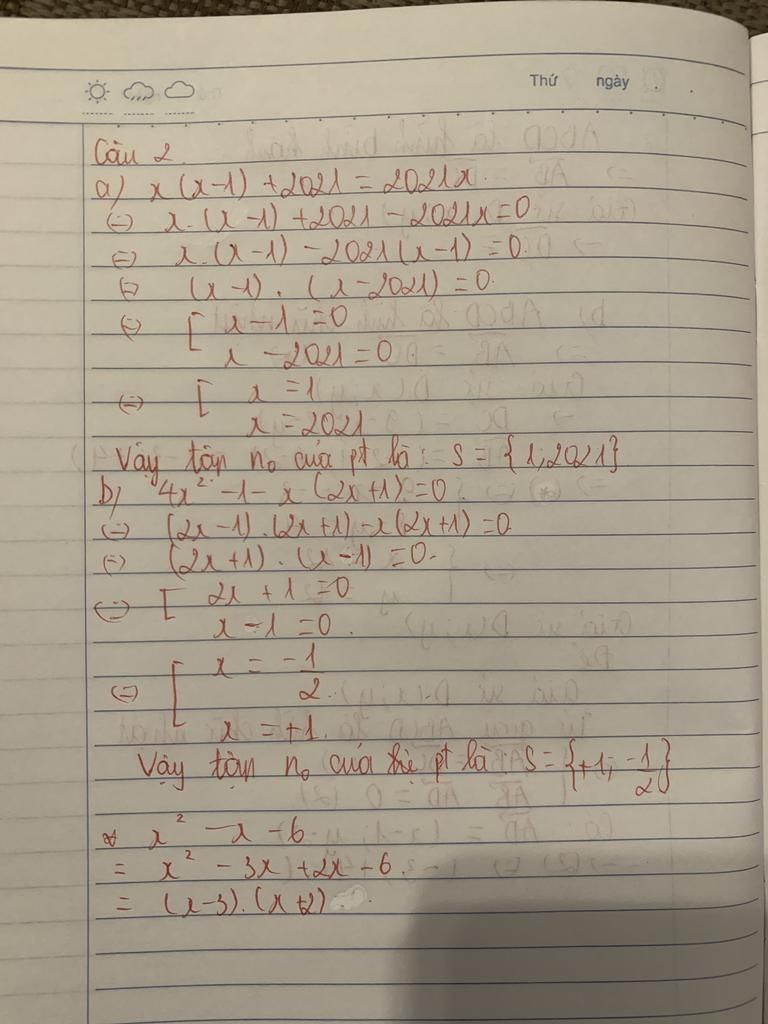 Thứ ngày . .
Câu 2
a) x(x-1) + 2021 = 2021x.
(=) x.(x-1) + 2021 - 2021x = 0
(=) x.(x-1) - 2021(x-1) = 0.
(=) (x-1).(x-2021) = 0.
(=) [ x-1 = 0
x - 2021 = 0
(=) [ x = 1
x = 2021
Vậy tập n₀ của pt là: S = {1; 2021}
b) 4x² - 1 - x(2x+1) = 0.
(=) (2x-1).(2x+1) - x(2x+1) = 0
(=) (2x+1).(x-1) = 0.
(=) [ 2x + 1 = 0
x - 1 = 0.
(=) [ x = -1/2.
x = +1.
Vậy tập n₀ của pt là: S = {+1; -1/2}
* x² - x - 6
= x² - 3x + 2x - 6.
= (x-3).(x+2)